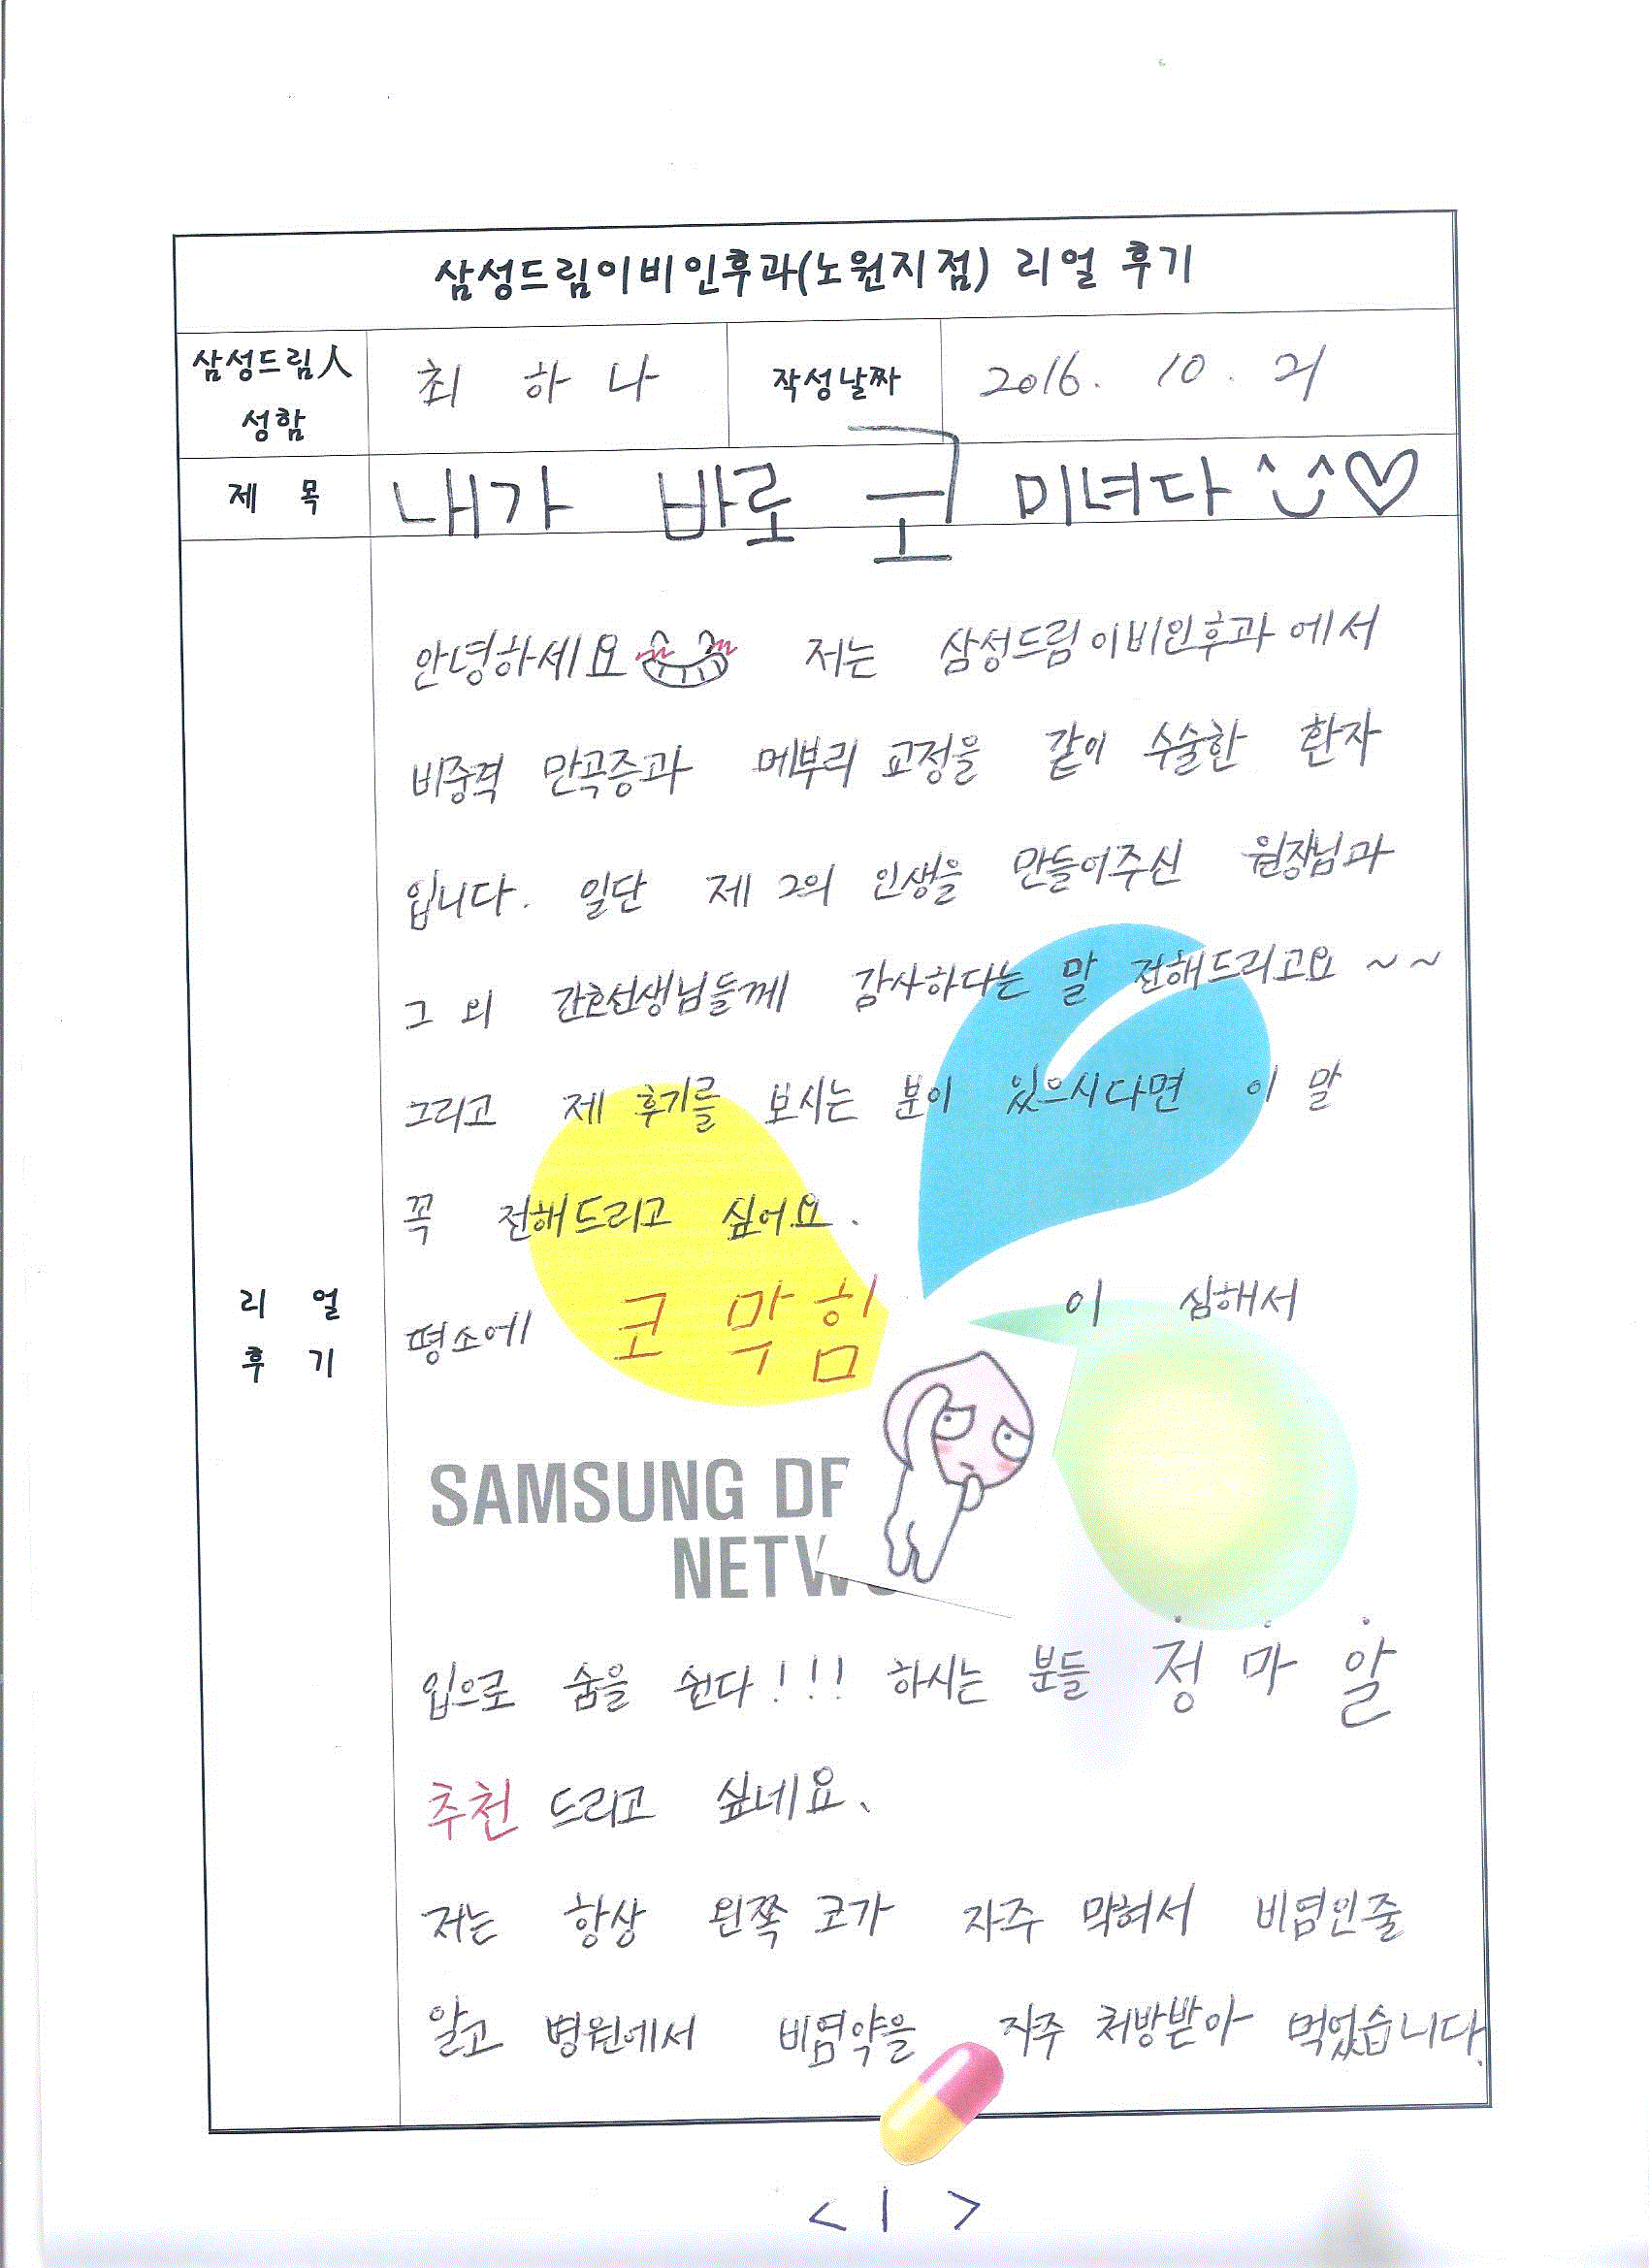 삼성드림이비인후과(노원지점) 리얼 후기
삼성드림人 성함
최 하 나
작성날짜
2016. 10. 21
제 목
내가 바로 코 미녀다
리 얼
후 기
안녕하세요 저는 삼성드림이비인후과에서
비중격 만곡증과 메부리 교정을 같이 수술한 환자
입니다. 일단 제 2의 인생을 만들어주신 원장님과
그 외 간호선생님들께 감사하다는 말 전해드리고요 ~~
그리고 제 후기를 보시는 분이 있으시다면 이 말
꼭 전해드리고 싶어요.
평소에 코 막힘 이 심해서
SAMSUNG
입으로 숨을 쉰다!!! 하시는 분들 정 마 알
추천 드리고 싶네요.
저는 항상 왼쪽 코가 자주 막혀서 비염인줄
알고 병원에서 비염약을 자주 처방받아 먹었습니다.
< 1 >